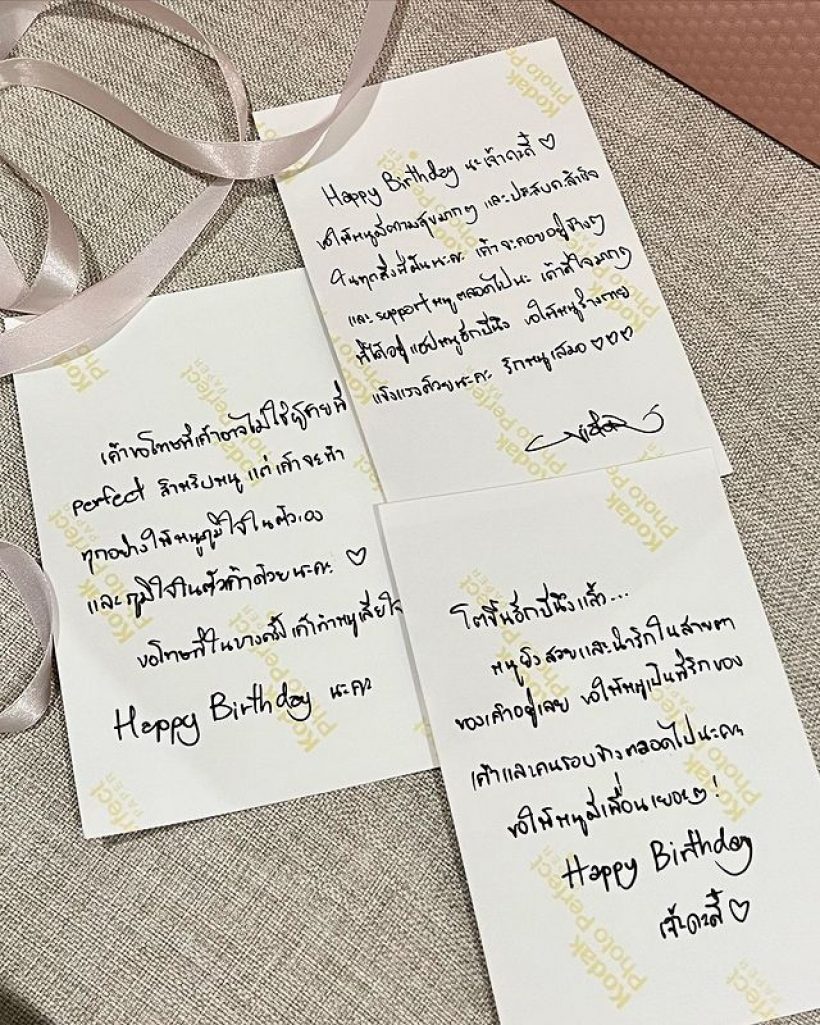 Happy Birthday นะเจ้าดะดี้ ♡
ขอให้หนูมีความสุขมากๆ และประสบความสำเร็จ
ในทุกสิ่งที่ฝันนะคะ เค้าจะคอยอยู่ข้างๆ
และ support หนูตลอดไปนะ เค้าดีใจมากๆ
ที่ได้อยู่ แฮปหนูอีกปีนึง ขอให้หนูร่างกาย
แข็งแรงด้วยนะคะ รักหนูเสมอ ♡♡♡
เค้าขอโทษที่เค้าอาจไม่ใช่ผู้ชายที่
perfect สำหรับหนู แต่เค้าจะทำ
ทุกอย่างให้หนูภูมิใจในตัวเอง
และภูมิใจในตัวเค้าด้วยนะคะ ♡
ขอโทษที่ในบางครั้งเค้าทำหนูเสียใจ
Happy Birthday นะคะ
โตขึ้นอีกปีนึงแล้ว...
หนูยังสวยและน่ารักในสายตา
ของเค้าอยู่เลย ขอให้หนูเป็นที่รักของ
เค้าและคนรอบข้างตลอดไปนะคะ
ขอให้หนูมีเพื่อนเยอะๆ!
Happy Birthday
เจ้าดะดี้ ♡
Kodak
Photo Perfect
PAPER